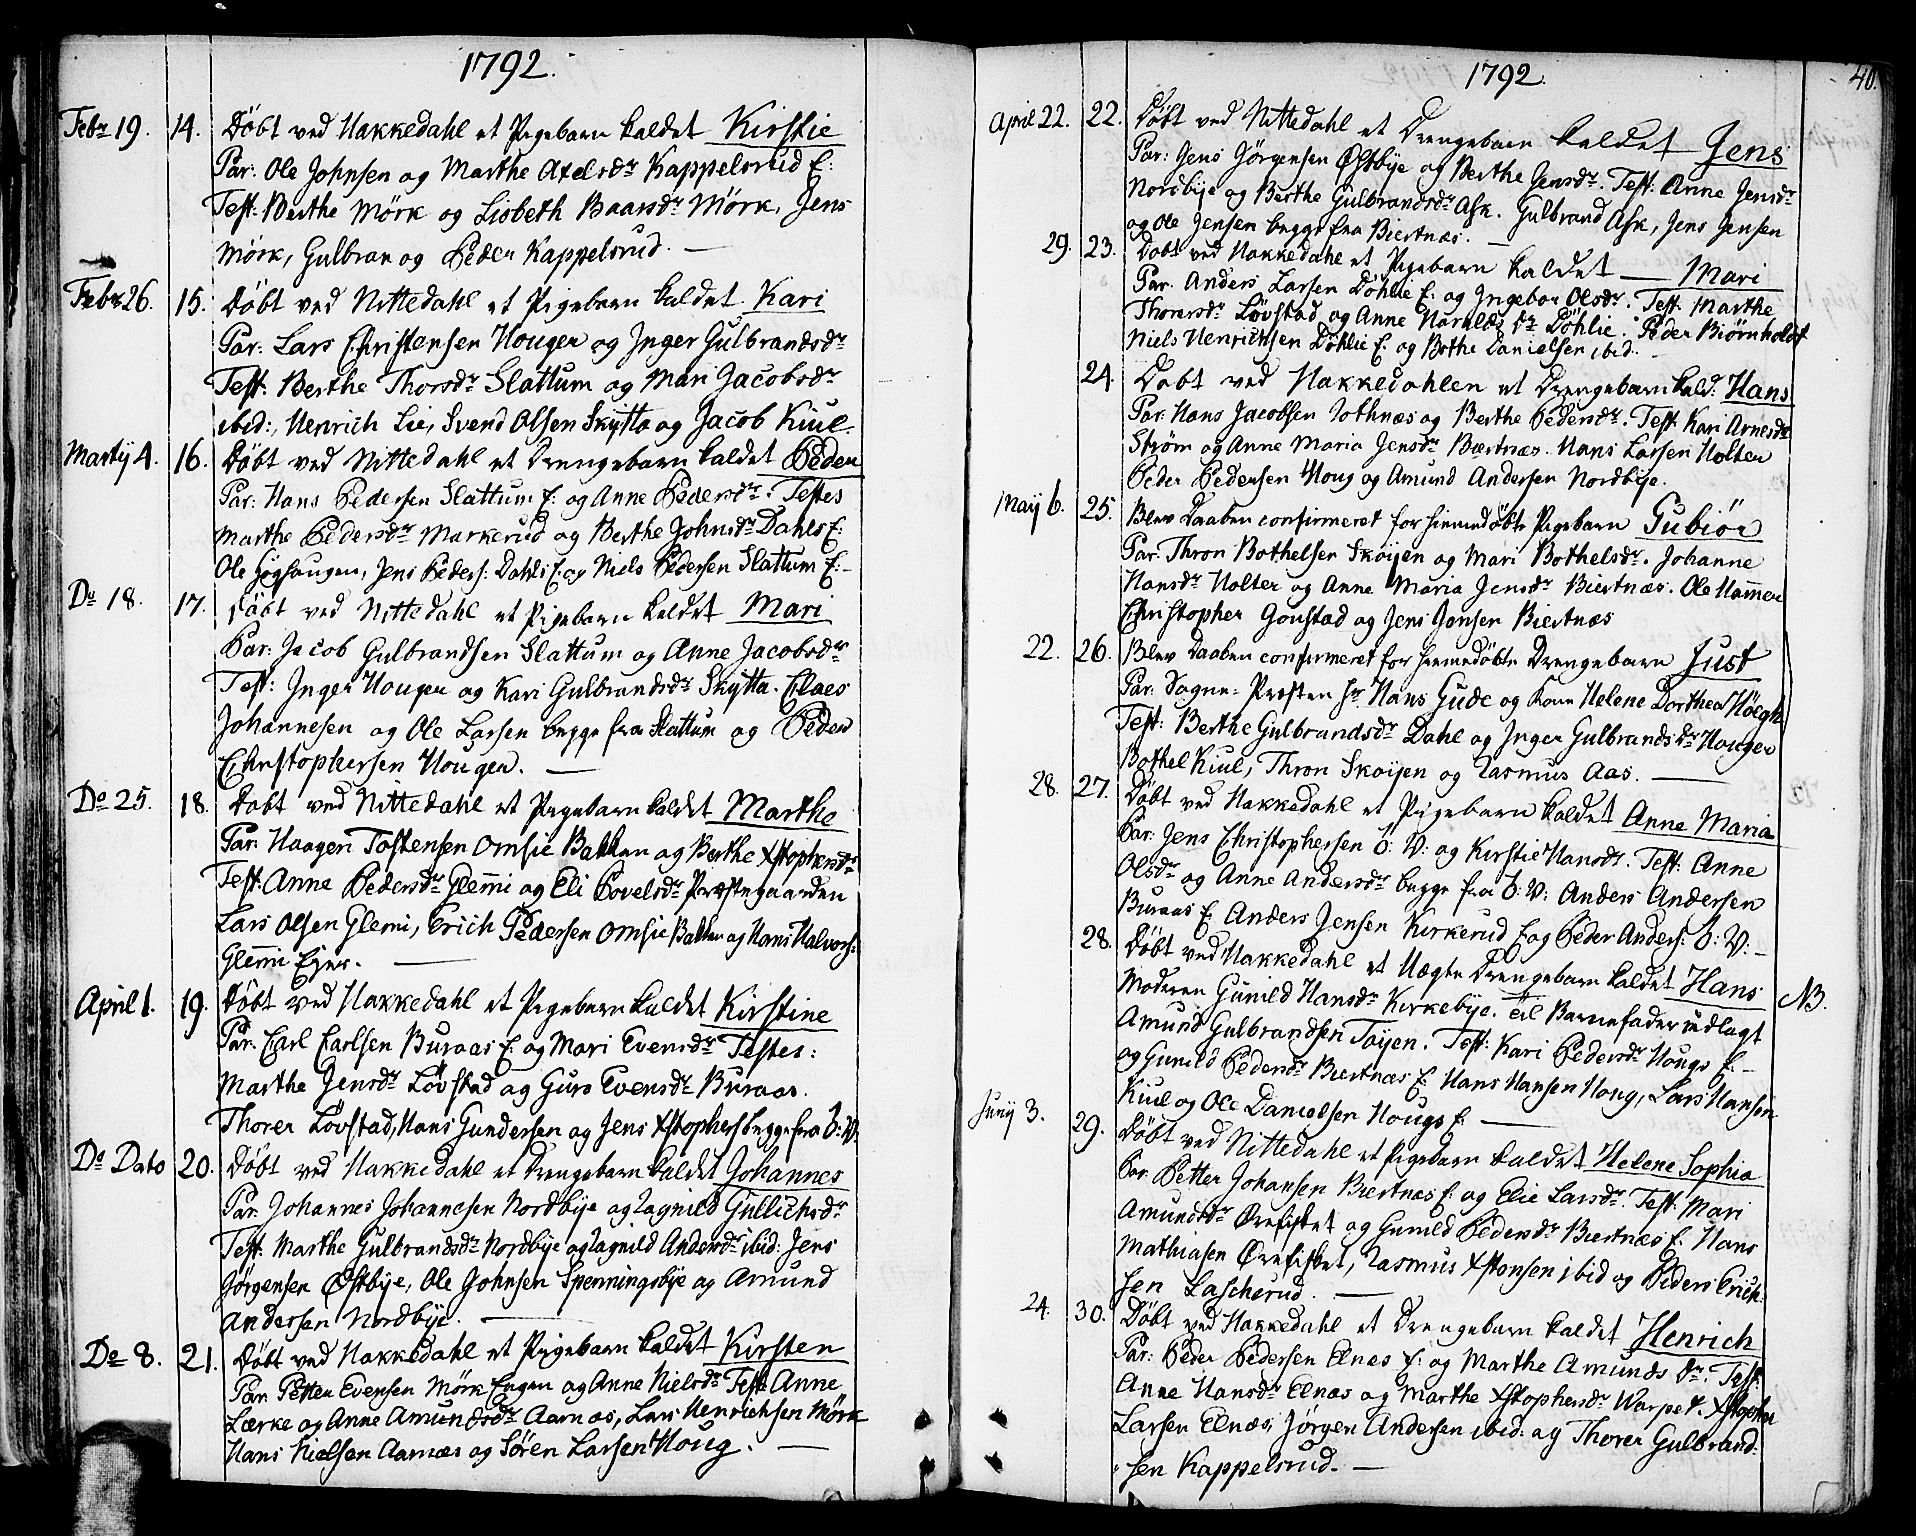 1792.
Febr 19. 14. Döbt ved Hakkedahl et Pigebarn kaldet Kirstie
Par: Ole Johnsen og Marthe Axelsdr Kappelsrud E:
Test: Berthe Mörk og Lisbeth Baarsdr Mörk, Jens
Mörk, Gulbran og Peder Kappelsrud. —
Febr 26. 15. Döbt ved Nittedahl et Pigebarn kaldet Kari
Par: Lars Christensen Hougen og Inger Gulbrandsdr
Test: Berthe Thorsdr Slattum og Mari Jacobsdr
ibid:, Henrich Lie, Svend Olsen Skytta og Jacob Kiul.
Martij 4. 16. Döbt ved Nittedahl et Drengebarn kaldet Peder
Par: Hans Pedersen Slattum E: og Anne Pedersdr. Testes
Marthe Pedersdr Markerud og Berthe Johnsdr Dahls E:
Ole Høghaugen, Jens Peders: Dahls E: og Niels Pedersen Slattum E: -
Do 18. 17. Döbt ved Nittedahl et Pigebarn kaldet Mari
Par: Jacob Gulbrandsen Slattum og Anne Jacobsdr
Test: Inger Hougen og Kari Gulbrandsdr Skytta. Claes
Johannesen og Ole Larsen begge fra Slattum og Peder
Christophersen Hougen. —
Do 25. 18. Döbt ved Nittedahl et Pigebarn kaldet Marthe
Par: Haagen Tostensen Omsie Bakken og Berthe Xstophersdr
Test: Anne Pedersdr Glemmi og Eli Povelsdr Præstegaarden
Lars Olsen Glemi, Erich Pedersen Omsie Bakken og Hans Halvors:
Glemmi Ejer. —
April 1. 19. Döbt ved Hakkedahl et Pigebarn kaldet Kirstine
Par. Carl Carlsen Buraas E: og Mari Evensdr Testes:
Marthe Jensdr Løvstad og Guro Evensdr Buraas.
Thorer Løvstad, Hans Gundersen og Jens Xstophers begge fra O: V:
Do Dato 20. Döbt ved Hakkedahl et Drengebarn kaldet Johannes
Par. Johannes Johannesen Nordbye og Ragnild Gullichsdr
Test: Marthe Gulbrandsdr Nordbye og Ragnild Andersdr ibid: Jens
Jörgensen Østbye, Ole Johnsen Spenningsbye og Amund
Andersen Nordbye. —
Do 8. 21. Döbt ved Hakkedahl et Pigebarn kaldet Kirsten
Par. Petter Evensen Mörk Engen og Anne Nielsdr Test Anne
Lærke og Anne Amundsdr Aarnæs, Lars Henrichsen Mörk
Hans Nielsen Aarnæs og Sören Larsen Houg. —
1792. 40.
April 22. 22. Döbt ved Nittedahl et Drengebarn kaldet Jens
Par: Jens Jörgensen Østbye og Berthe Jensdr. Test: Anne Jensdr
Nordbye og Berthe Gulbrandsdr Ask. Gulbrand Ask, Jens Jensen
og Ole Jensen begge fra Biertnæs. —
29. 23. Döbt ved Hakkedahl et Pigebarn kaldet — Mari
Par. Anders Larsen Döhlie E: og Ingebor Olsdr. Test. Marthe
Thorersdr Løvstad og Anne Haralds dr Döhlie. Peder Biørnholdt
Niels Henrichsen Döhlie E: og Bothe Danielsen ibid. —
24. Döbt ved Hakkedahlen et Drengebarn kald. Hans
Par: Hans Jacobsen Rothnæs og Berthe Pedersdr. Test: Kari Arnesdr
Strøm og Anne Maria Jensdr Bærtnæs. Hans Larsen Holter
Peder Pedersen Houg og Amund Andersen Nordbye.
Maij 6. 25. Blev Daaben confirmeret for hiemmedöbte Pigebarn Gubiør
Par: Thron Bothelsen Skøijen og Mari Bothelsdr. Johanne
Hansdr Holter og Anne Maria Jensdr Biertnæs. Ole Hammer
Christopher Gonstad og Jens Jonsen Biertnæs
22. 26. Blev Daaben confirmeret for hiemmedöbte Drengebarn Just
Par: Sogne-Præsten Hr Hans Gude og Kone Helene Dorthea Høegh
Test: Berthe Gulbrandsdr Dahl og Inger Gulbrands dr Hougen
Bothel Kiul, Thron Skøijen og Rasmus Aas. —
28. 27. Döbt ved Hakkedahl et Pigebarn kaldet Anne Maria
Par: Jens Christophersen O: V: og Kirstie Hansdr. Test: Anne
Olsdr og Anne Andersdr begge fra O: V: Anders Andersen
Buraas E: Anders Jensen Kirkerud E og Peder Anders: O: V: —
28. Döbt ved Hakkedahl et Uægte Drengebarn kaldet Hans NB.
Moderen Gunild Hansdr Kirkebye. til Barnefader udlagt
Amund Gulbrandsen Tøyen. Test: Kari Pedersdr Hougs E: —
og Gunild Pedersdr Biertnæs E: Hans Hansen Houg, Lars Hansen
Kiul og Ole Danielsen Hougs E. —
Junij 3. 29. Döbt ved Nittedahl et Pigebarn kaldet Helene Sophia
Par Petter Johansen Biertnæs E: og Elie Larsdr. Test: Mari
Amundsdr Ørefisket og Gunild Pedersdr Biertnæs E: Hans
Mathiasen Ørefisket, Rasmus Xstensen ibid og Peders Erich:
sen Lascherud. —
24. 30. Döbt ved Hakkedahl et Drengebarn kaldet Henrich
Par: Peder Pedersen Elnæs E: og Marthe Amunds dr. Test:
Anne Hansdr Elnæs og Marthe Xstophersdr Warpet. Xstopher
Larsen Elnæs, Jörgen Andersen ibid: og Thorer Gulbrand:
sen Kappelsrud. —